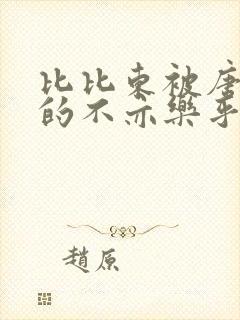 比比东被唐
的不亦樂乎
趙原